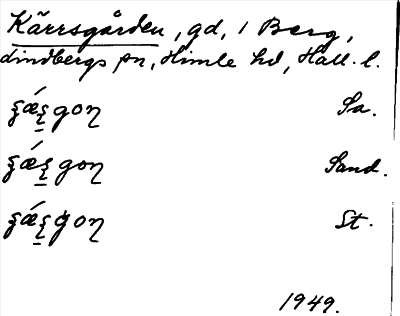 Kärrsgården, gd, 1 Berg,
Lindbergs sn, Himle hd, Hall. l.
Sa.
Sand.
St.
1949.